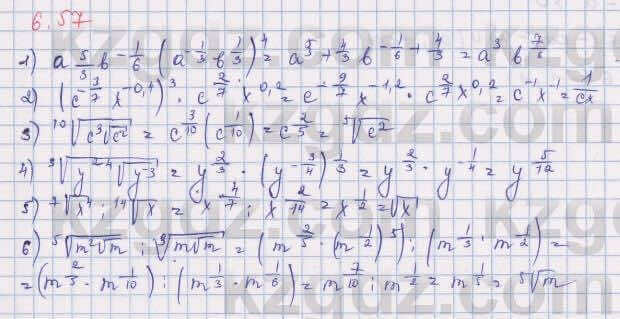 6.57
1) a^{5/3} b^{-1/6} (a^{-1/3} b^{1/3})^4 = a^{5/3 + 4/3} b^{-1/6 + 4/3} = a^3 b^{7/6}
2) (c^{-3/7} x^{-0,4})^3 · c^{2/7} x^{0,2} = c^{-9/7} x^{-1,2} · c^{2/7} x^{0,2} = c^{-1} x^{-1} = 1/cx
3) ^{10}√(c^3 √(c^2)) = c^{3/10} (c^{1/10}) = c^{2/5} = ^5√(c^2)
4) ^3√(y^2 ^4√(y^{-3})) = y^{2/3} · (y^{-3/4})^{1/3} = y^{2/3} · y^{-1/4} = y^{5/12}
5) ^7√(x^4) : ^{14}√x = x^{4/7} : x^{2/14} = x^{1/2} = √x
6) ^5√(m^2 √m) : ^3√(m √m) = (m^{2/5} · (m^{1/2})^5) : (m^{1/3} · m^{1/2}) =
= (m^{2/5} · m^{1/10}) : (m^{1/3} · m^{1/6}) = m^{7/10} : m^{1/2} = m^{1/5} = ^5√m